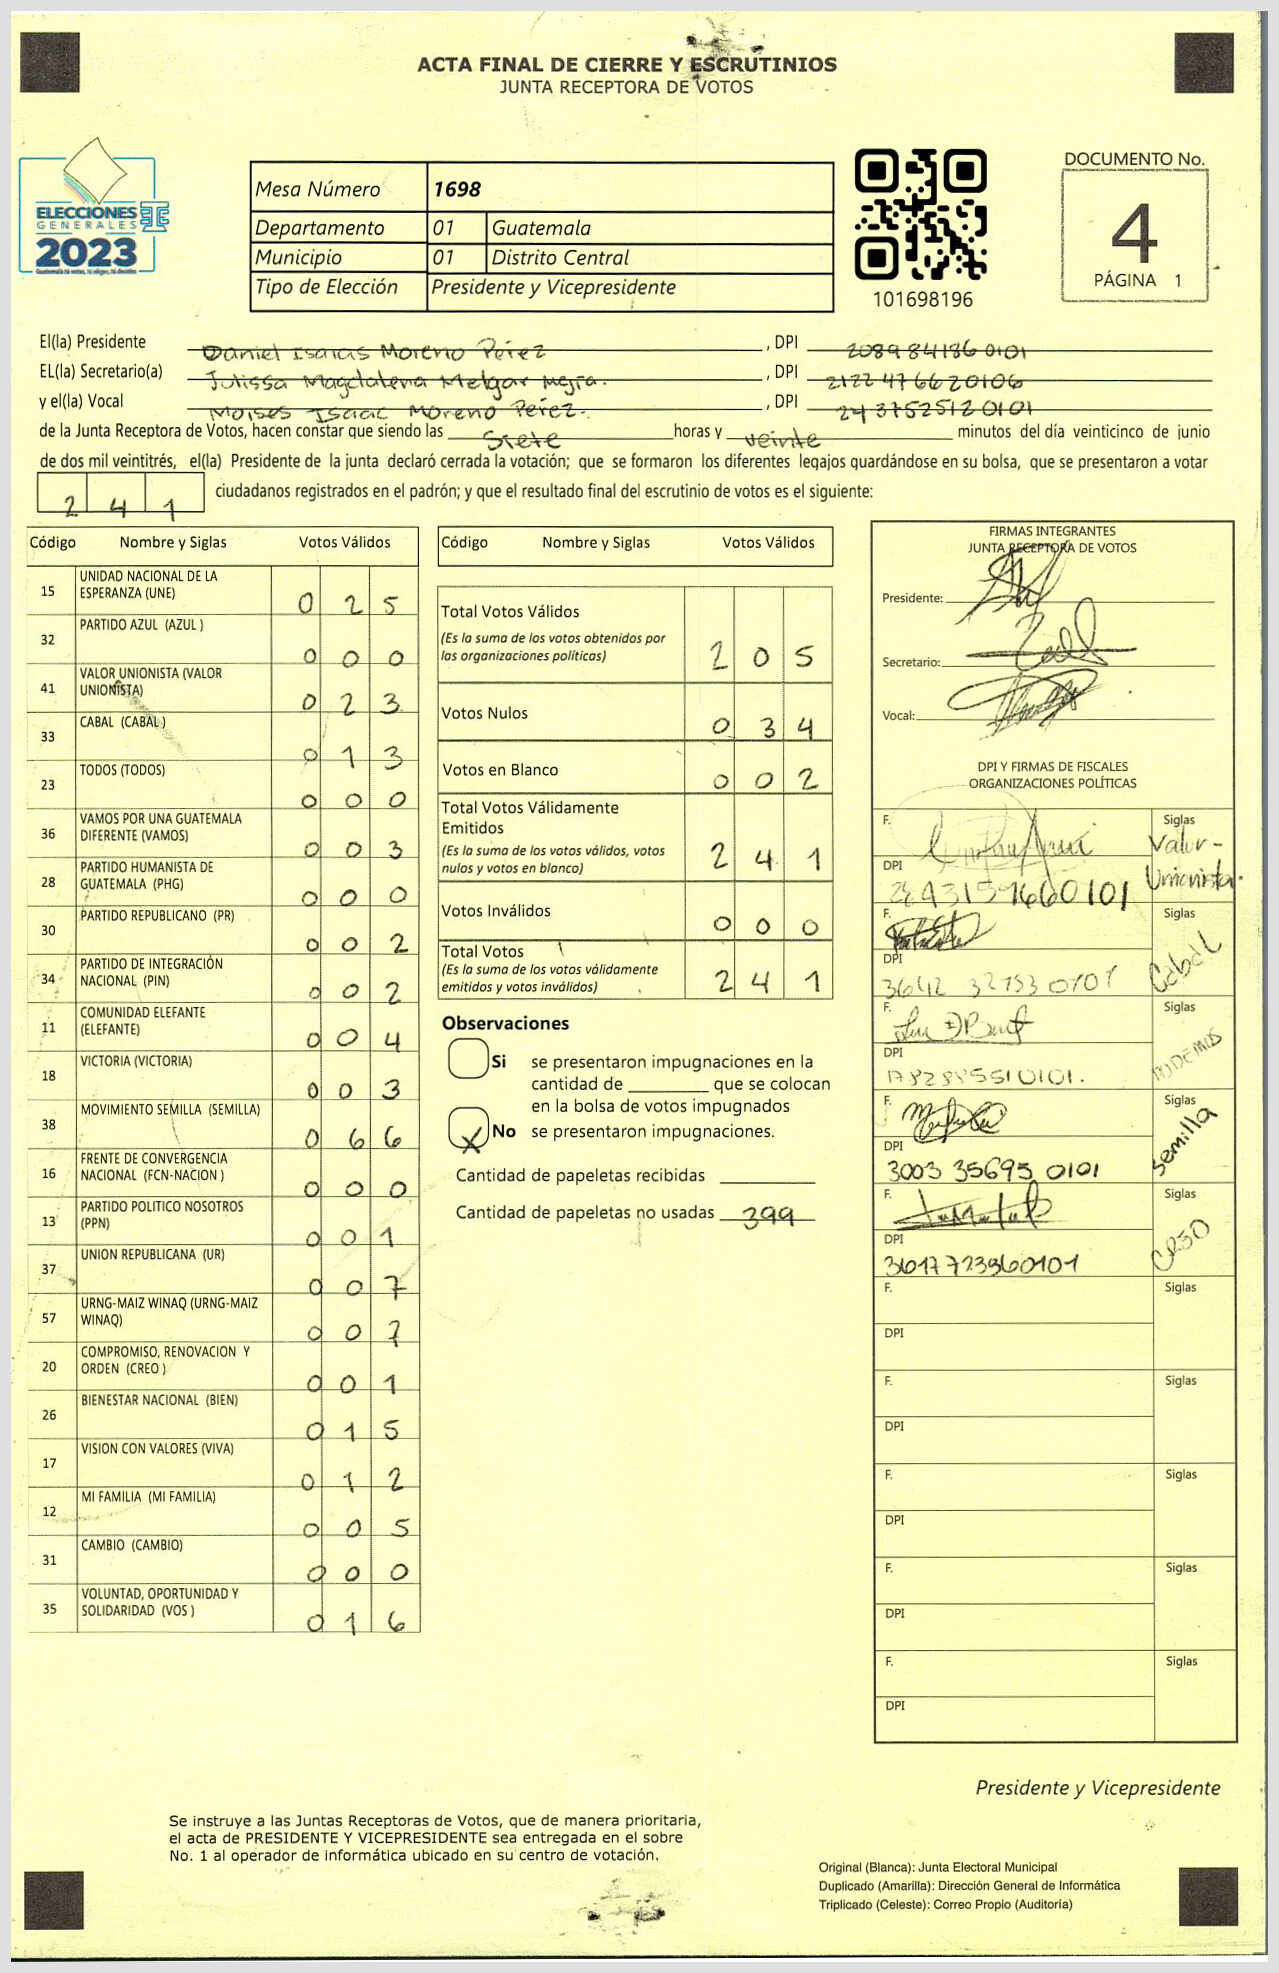 ACTA FINAL DE CIERRE Y ESCRUTINIOS
JUNTA RECEPTORA DE VOTOS
ELECCIONES
GENERALES
2023
Mesa Número 1698
Departamento 01 Guatemala
Municipio 01 Distrito Central
Tipo de Elección Presidente y Vicepresidente
101698196
DOCUMENTO No.
4
PÁGINA 1
El(la) Presidente Daniel Isaias Moreno Pérez, DPI 2089841360101
EL(la) Secretario(a) Julissa Magdalena Melgar Mejía., DPI 2122476620106
y el(la) Vocal Moises Isaac Moreno Pérez., DPI 2437525120101
de la Junta Receptora de Votos, hacen constar que siendo las Siete horas y veinte minutos del día veinticinco de junio
de dos mil veintitrés, el(la) Presidente de la junta declaró cerrada la votación; que se formaron los diferentes legajos guardándose en su bolsa, que se presentaron a votar
241 ciudadanos registrados en el padrón; y que el resultado final del escrutinio de votos es el siguiente:
Código Nombre y Siglas Votos Válidos
15 UNIDAD NACIONAL DE LA ESPERANZA (UNE) 025
32 PARTIDO AZUL (AZUL ) 000
41 VALOR UNIONISTA (VALOR UNIONISTA) 023
33 CABAL (CABAL ) 013
23 TODOS (TODOS) 000
36 VAMOS POR UNA GUATEMALA DIFERENTE (VAMOS) 003
28 PARTIDO HUMANISTA DE GUATEMALA (PHG) 000
30 PARTIDO REPUBLICANO (PR) 002
34 PARTIDO DE INTEGRACIÓN NACIONAL (PIN) 002
11 COMUNIDAD ELEFANTE (ELEFANTE) 004
18 VICTORIA (VICTORIA) 003
38 MOVIMIENTO SEMILLA (SEMILLA) 066
16 FRENTE DE CONVERGENCIA NACIONAL (FCN-NACION ) 000
13 PARTIDO POLITICO NOSOTROS (PPN) 001
37 UNION REPUBLICANA (UR) 007
57 URNG-MAIZ WINAQ (URNG-MAIZ WINAQ) 007
20 COMPROMISO, RENOVACION Y ORDEN (CREO ) 001
26 BIENESTAR NACIONAL (BIEN) 015
17 VISION CON VALORES (VIVA) 012
12 MI FAMILIA (MI FAMILIA) 005
31 CAMBIO (CAMBIO) 000
35 VOLUNTAD, OPORTUNIDAD Y SOLIDARIDAD (VOS ) 016
Código Nombre y Siglas Votos Válidos
Total Votos Válidos
(Es la suma de los votos obtenidos por
las organizaciones políticas) 205
Votos Nulos 034
Votos en Blanco 002
Total Votos Válidamente
Emitidos
(Es la suma de los votos válidos, votos
nulos y votos en blanco) 241
Votos Inválidos 000
Total Votos
(Es la suma de los votos válidamente
emitidos y votos inválidos) 241
Observaciones
Si se presentaron impugnaciones en la
cantidad de ________ que se colocan
en la bolsa de votos impugnados
X No se presentaron impugnaciones.
Cantidad de papeletas recibidas
Cantidad de papeletas no usadas 399
FIRMAS INTEGRANTES
JUNTA RECEPTORA DE VOTOS
Presidente:
Secretario:
Vocal:
DPI Y FIRMAS DE FISCALES
ORGANIZACIONES POLÍTICAS
F. Siglas Valor-
Unionista.
DPI
F. Siglas Cabal
DPI
F. Siglas PODEMOS
DPI
F. Siglas Semilla
DPI 3003 35695 0101
F. Siglas CREO
DPI 3617723960101
F. Siglas
DPI
F. Siglas
DPI
F. Siglas
DPI
F. Siglas
DPI
F. Siglas
DPI
Presidente y Vicepresidente
Se instruye a las Juntas Receptoras de Votos, que de manera prioritaria,
el acta de PRESIDENTE Y VICEPRESIDENTE sea entregada en el sobre
No. 1 al operador de informática ubicado en su centro de votación.
Original (Blanca): Junta Electoral Municipal
Duplicado (Amarilla): Dirección General de Informática
Triplicado (Celeste): Correo Propio (Auditoría)